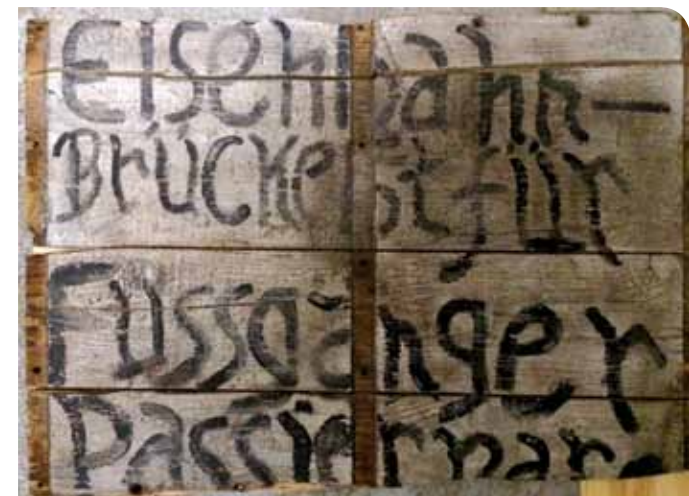 Eisenbahn-
Brücke ist für
Fussgänger
Passierbar.